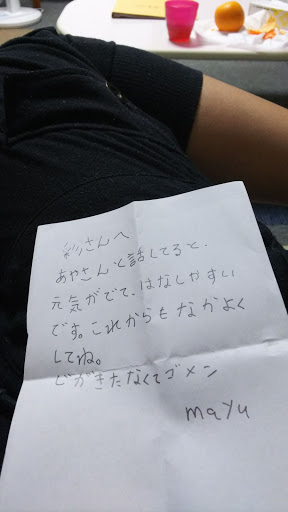 彩さんへ
あやさんと話してると、
元気がでて、はなしやすい
です。これからもなかよく
してね。
じがきたなくてゴメン
mayu